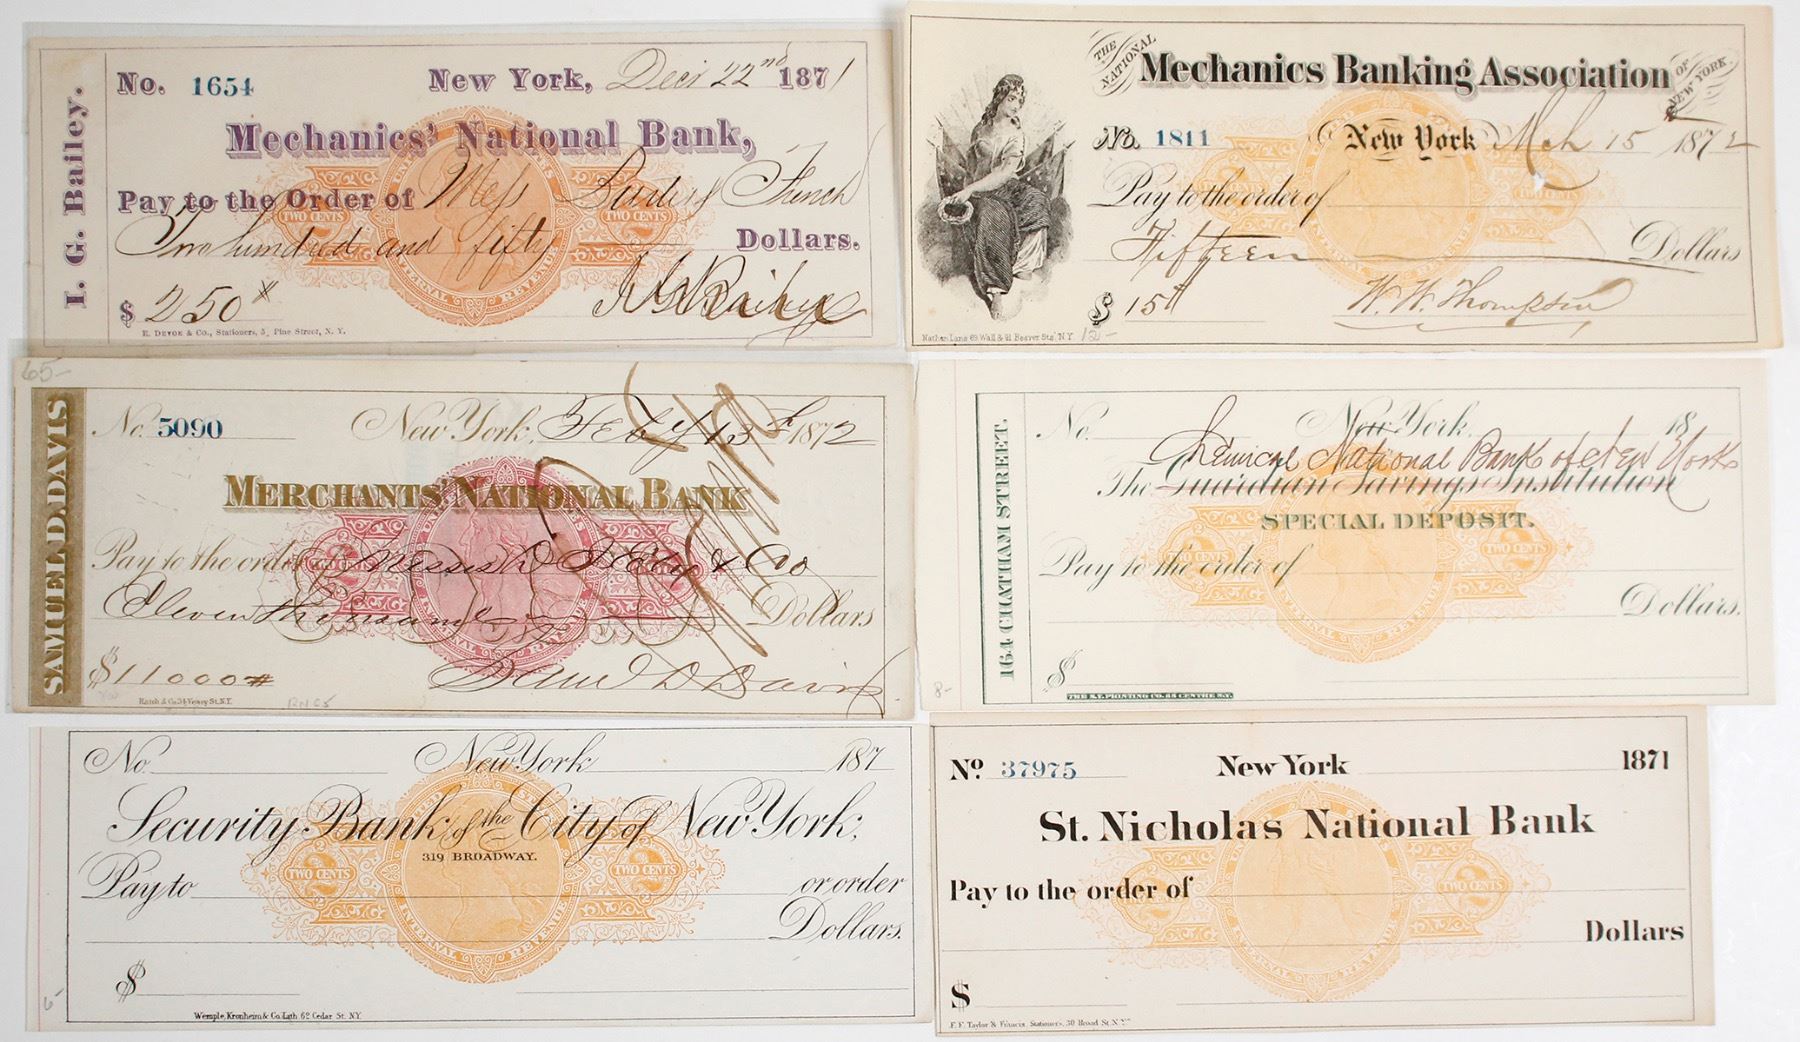 I. G. Bailey.
No. 1654 New York, Decr 22nd 1871
Mechanics' National Bank,
Pay to the Order of Mess French
TWO CENTS TWO CENTS
Two hundred and fifty Dollars.
INTERNAL REVENUE
$ 250
E. DEVOE & Co., Stationers, 5, Pine Street, N. Y.
THE NATIONAL Mechanics Banking Association OF NEW YORK.
No. 1811 New York Mch 15 1872
Pay to the order of
Fifteen Dollars
$ 15 W. W. Thompson
Nathan Lane 69 Wall & 91 Beaver Sts. N.Y. 12-
65-
SAMUEL D. DAVIS
No. 5090 New York, Feby 13 1872
MERCHANTS' NATIONAL BANK
Pay to the order of Messrs & Co
Eleven thousand Dollars
INTERNAL REVENUE
$ 11000 Saml D Davis
Hatch & Co 34 Vesey St. N.Y.
164 CHATHAM STREET.
No. New York, 18
Chemical National Bank of New York
The Guardian Savings Institution
SPECIAL DEPOSIT.
TWO CENTS TWO CENTS
Pay to the order of
Dollars.
$
8-
THE N.Y. PRINTING CO. 88 CENTRE N.Y.
No. New York 187
Security Bank of the City of New York,
319 BROADWAY.
TWO CENTS TWO CENTS
Pay to or order
Dollars.
INTERNAL REVENUE
$
6-
Wemple, Kronheim & Co. Lith. 62 Cedar St. NY.
No 37975 New York 1871
St. Nicholas National Bank
TWO CENTS
Pay to the order of
Dollars
INTERNAL REVENUE
$
F. F. Taylor & Francis, Stationers, 30 Broad St. N.Y.